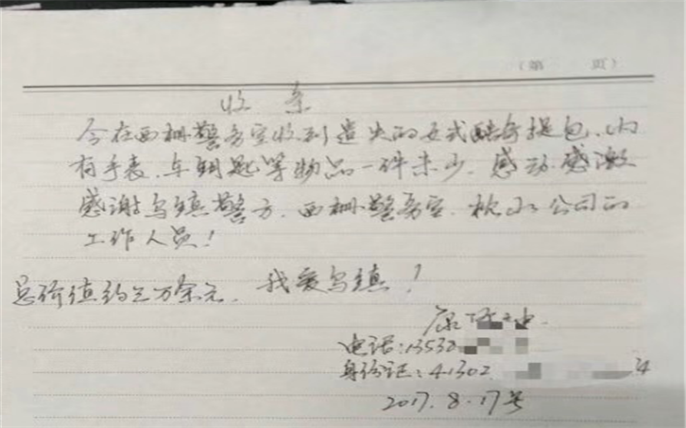 (第 页)
收条
今在西栅警务室收到遗失的女式酷奇提包、内
有手表、车钥匙等物品一件未少。感动感激
感谢乌镇警方、西栅警务室、 公司的
工作人员!
总价值约三万余元、我爱乌镇!
康
电话:13530
身份证:41302 34
2017.8.17号